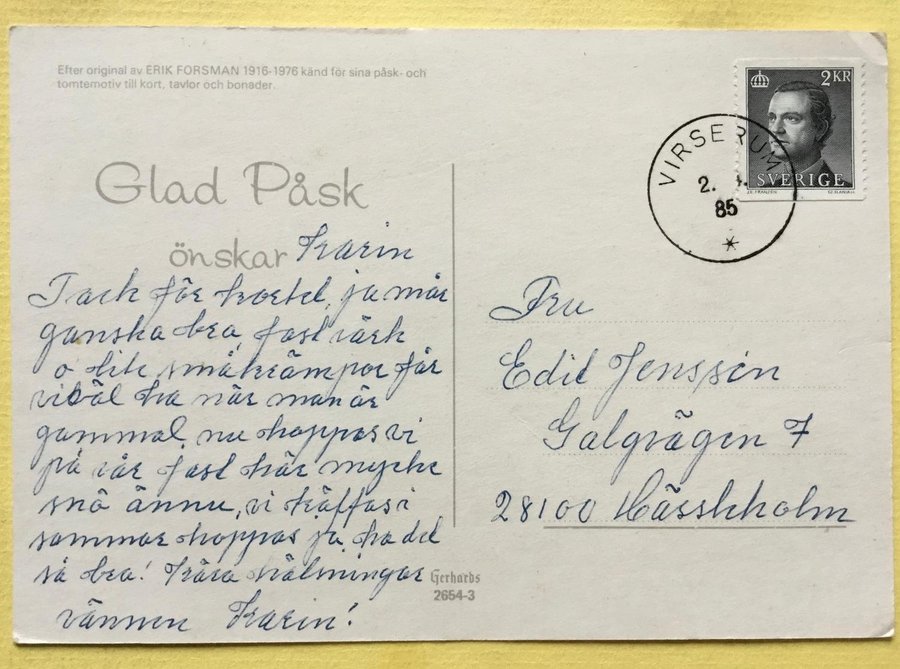 Efter original av ERIK FORSMAN 1916-1976 känd för sina påsk- och
tomtemotiv till kort, tavlor och bonader.
2 KR
SVERIGE
VIRSERUM
2. 4.
85
Glad Påsk
önskar Karin
Tack för kortet, ja mår
ganska bra, fast värk
o lite småkrämpor får
vi väl ha när man är
gammal, nu hoppas vi
på vår fast här mycke
snö ännu, vi träffas i
sommar hoppas ja, ha det
så bra! Kära hälsningar
vännen Karin!
Gerhards
2654-3
Fru
Edit Jenssen
Galgvägen 7
28100 Hässleholm